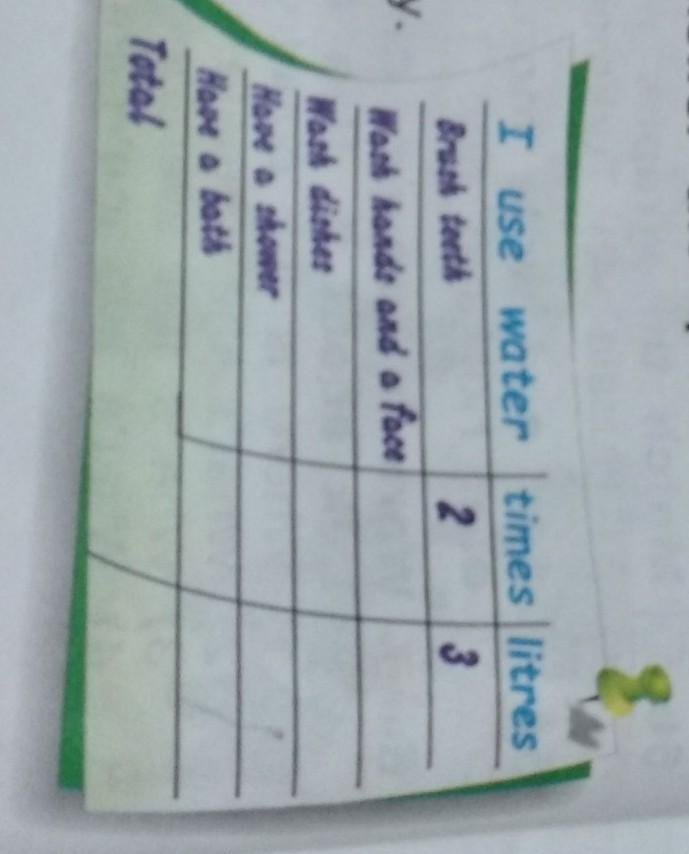 y.
I use water times litres
Brush teeth 2 3
Wash hands and a face
Wash dishes
Have a shower
Have a bath
Total